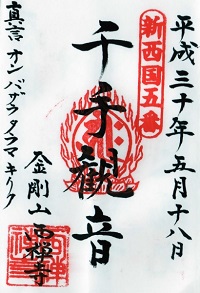 平成三十年五月十八日
新西国五番
千手観音
金剛山西禅寺
真言オンバザラタラマキリク